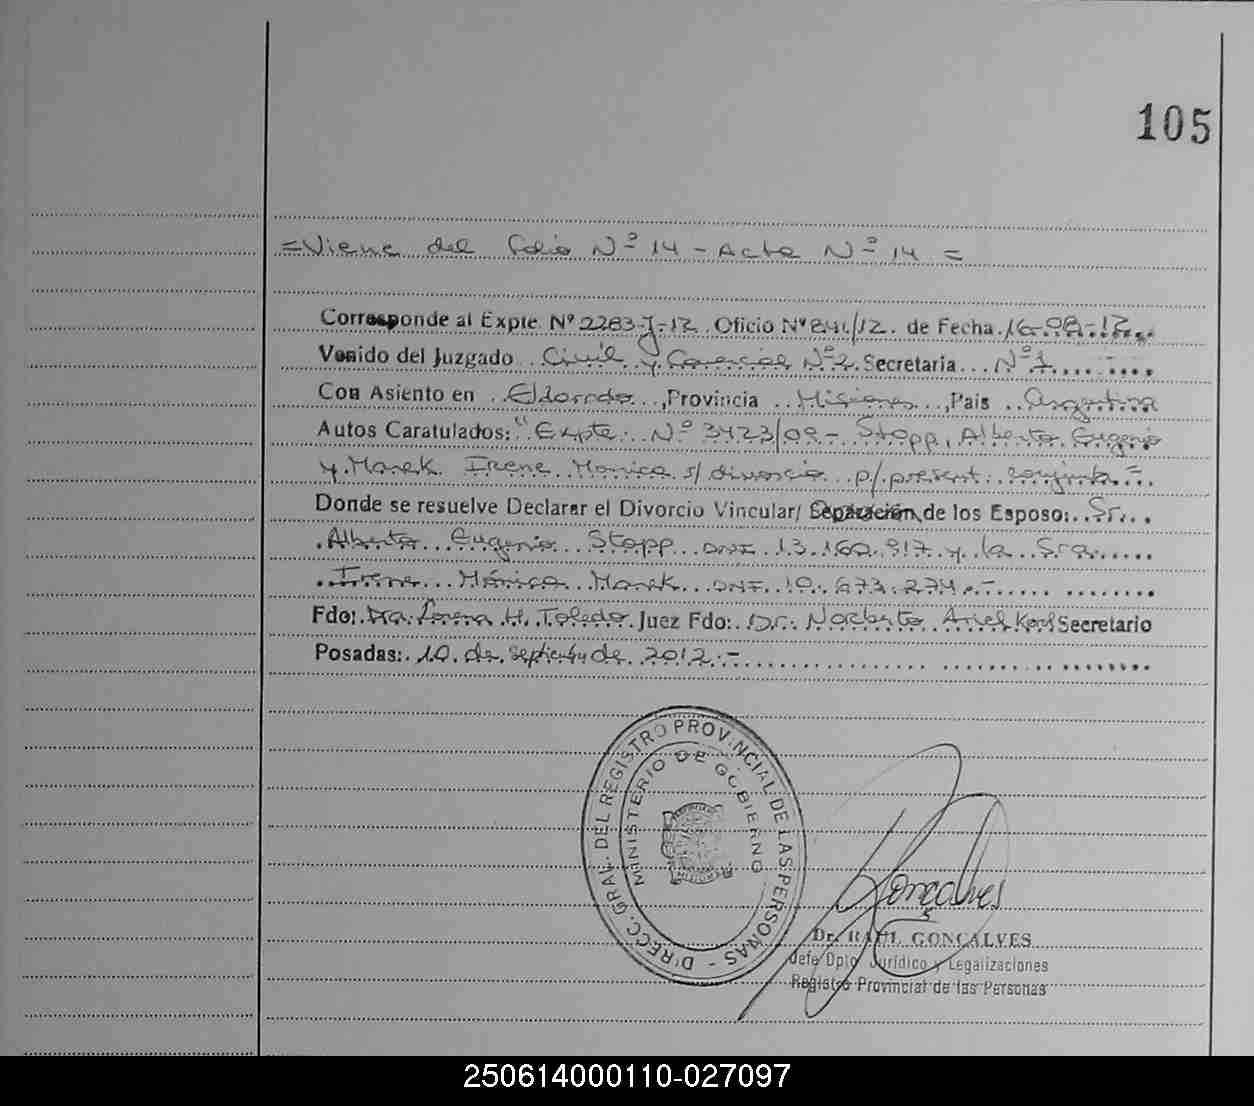 105
=Viene del folio Nº 14 - Acta Nº 14 =
Corresponde al Expte. Nº 2283-J-12. Oficio Nº 841/12. de Fecha 16-08-12
Venido del Juzgado Civil y Comercial Nº 2. Secretaria Nº 1
Con Asiento en Eldorado, Provincia Misiones, País Argentina
Autos Caratulados: "Expte. Nº 3423/09 - Stopp, Alberto Eugenio
y Marek Irene Monica s/ divorcio p/ present. conjunta =
Donde se resuelve Declarar el Divorcio Vincular/ Separación de los Esposo: Sr.
Alberto Eugenio Stopp DNI 13.160.917 y la Sra.
Irene Mónica Marek DNI 10.673.274.-
Fdo: Dra. Lorena H. Toledo. Juez Fdo: Dr. Norberto Ariel Korl Secretario
Posadas: 10 de septiembre de 2012.-
DIRECC. GRAL. DEL REGISTRO PROVINCIAL DE LAS PERSONAS -
MINISTERIO DE GOBIERNO
Gonçalves
Dr. RAUL GONÇALVES
Jefe Dpto. Jurídico y Legalizaciones
Registro Provincial de las Personas
250614000110-027097